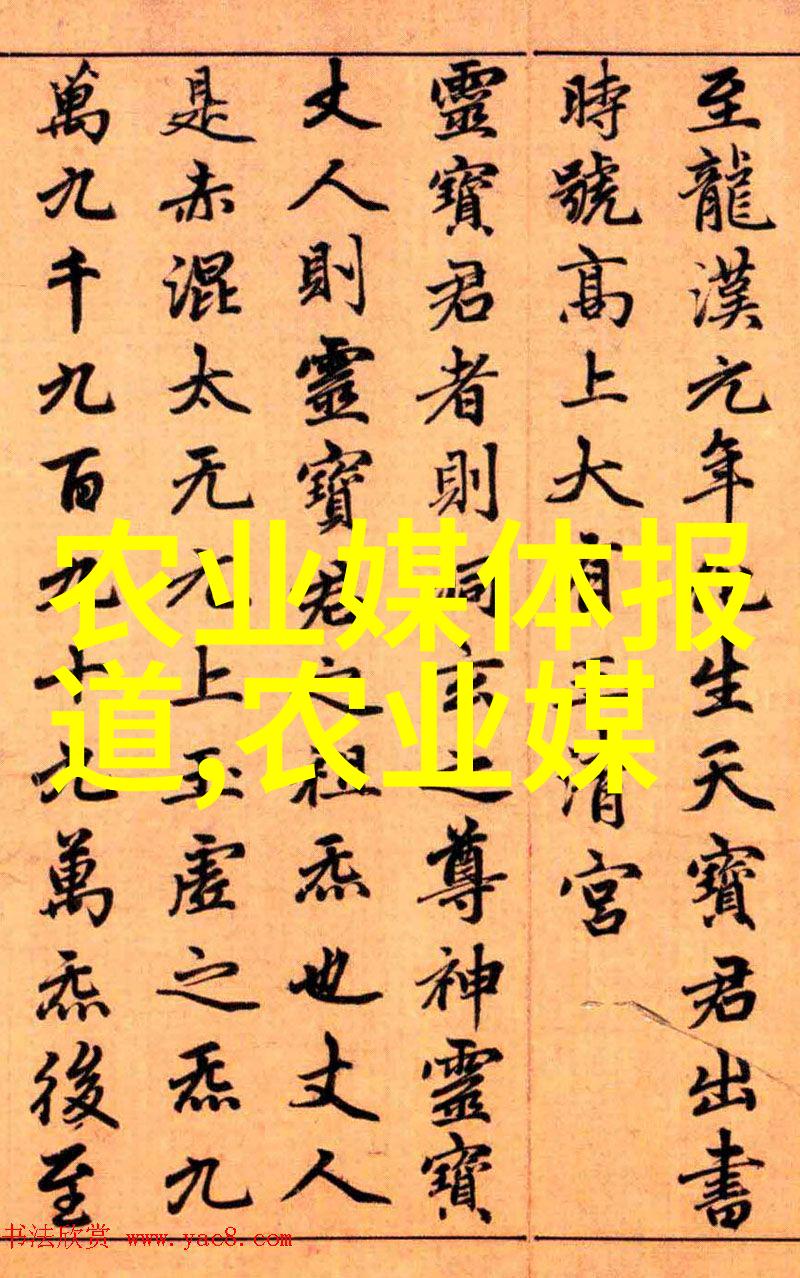 至龍漢元年化生天寶君出書
時號高上大有玉清宮
靈寶君者則洞玄之尊神靈寶
丈人則靈寶君之祖炁也丈人
是赤混太无元上玉虛之炁九
萬九千九百九十九萬炁後至
农业媒体报
道,农业媒
书法欣赏 www.yac8.com